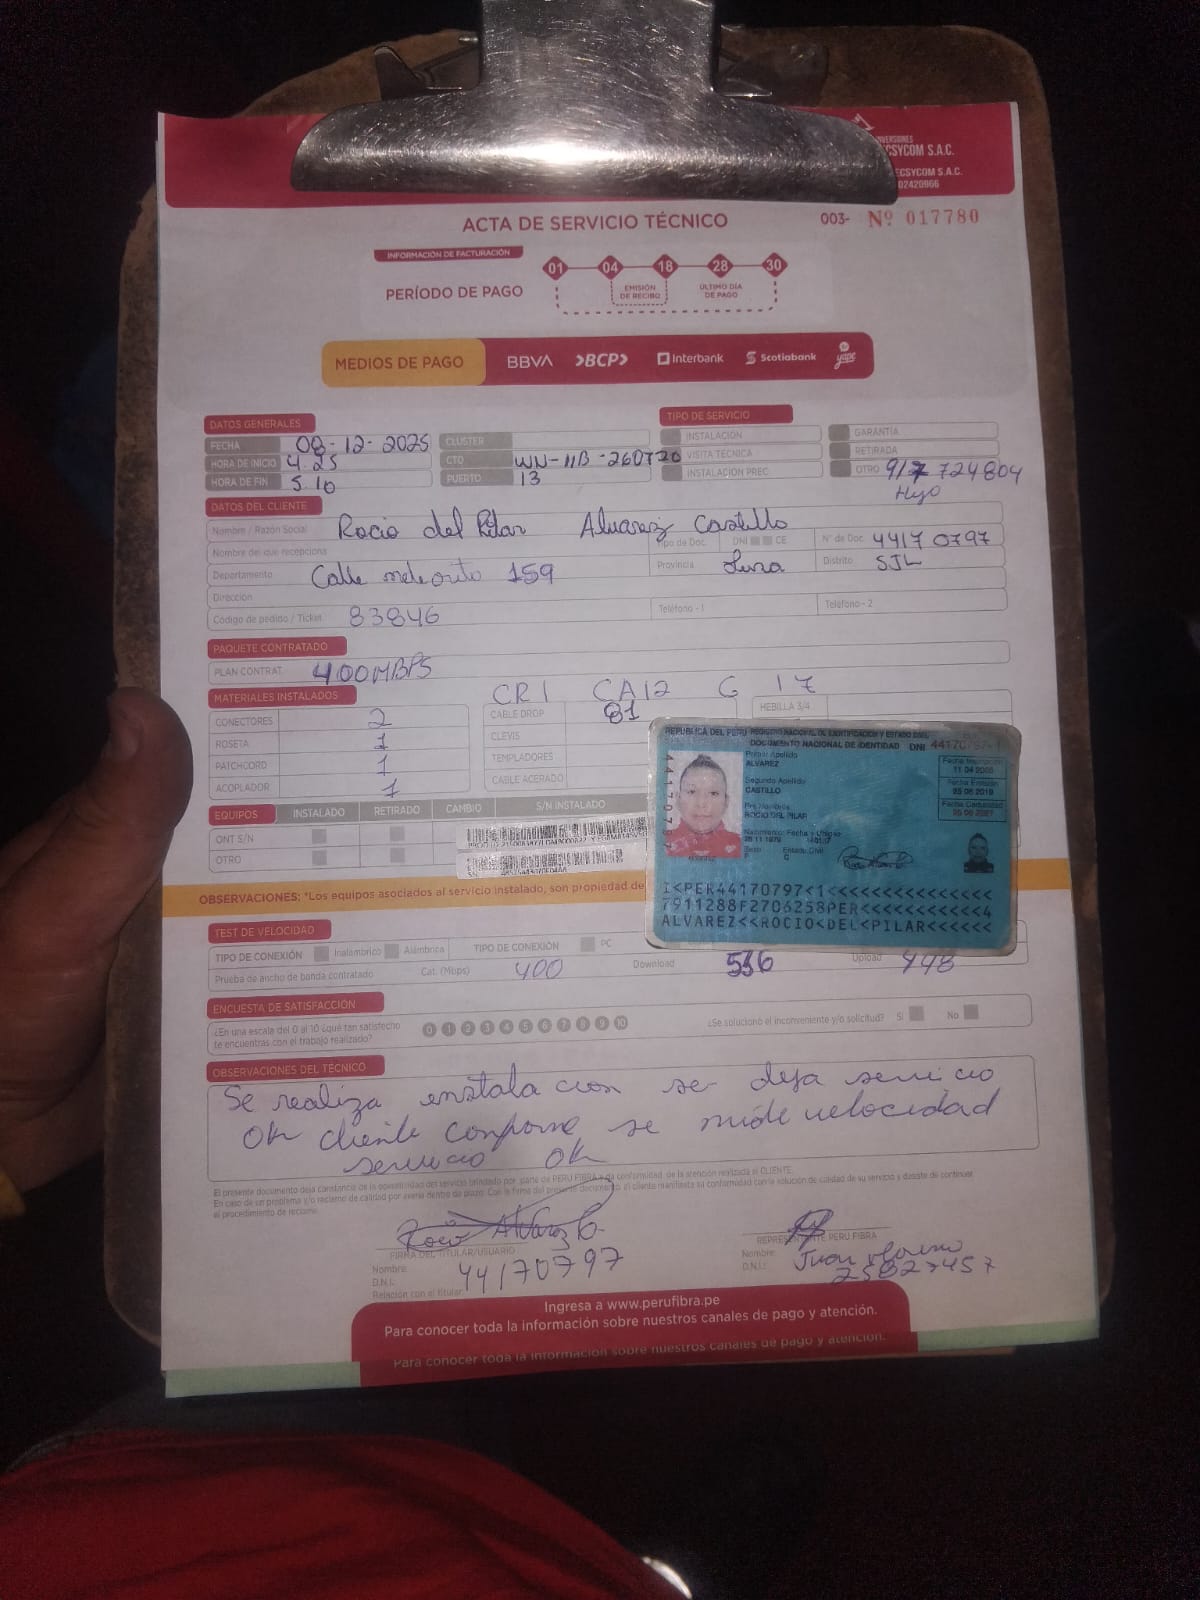 INVERSIONES
ECSYCOM S.A.C.
ECSYCOM S.A.C.
02420966
ACTA DE SERVICIO TÉCNICO
003- Nº 017780
INFORMACIÓN DE FACTURACIÓN
PERÍODO DE PAGO
01 04 18 28 30
EMISIÓN DE RECIBO
ÚLTIMO DÍA DE PAGO
MEDIOS DE PAGO BBVA >BCP> Interbank Scotiabank yape
DATOS GENERALES
FECHA 08-12-2025
HORA DE INICIO 4.25
HORA DE FIN 5 10
CLUSTER
CTO WN-11B-260720
PUERTO 13
TIPO DE SERVICIO
INSTALACIÓN
VISITA TÉCNICA
INSTALACIÓN PREC.
GARANTÍA
RETIRADA
OTRO 724804
Hijo
DATOS DEL CLIENTE
Nombre / Razón Social Rocio del Pilar Alvarez Castillo
Nombre del que recepciona
Tipo de Doc. DNI CE Nº de Doc. 44170797
Departamento Calle meteorito 159
Provincia Lima Distrito SJL
Dirección
Código de pedido / Ticket 83846 Teléfono - 1 Teléfono - 2
PAQUETE CONTRATADO
PLAN CONTRAT. 400MBPS
MATERIALES INSTALADOS CR1 CA12 G 17
CONECTORES 2
ROSETA 1
PATCHCORD 1
ACOPLADOR 1
CABLE DROP 81
CLEVIS
TEMPLADORES
CABLE ACERADO
HEBILLA 3/4
EQUIPOS INSTALADO RETIRADO CAMBIO S/N INSTALADO
ONT S/N
OTRO
REPÚBLICA DEL PERÚ REGISTRO NACIONAL DE IDENTIFICACIÓN Y ESTADO CIVIL
DOCUMENTO NACIONAL DE IDENTIDAD DNI 44170797-1
Primer Apellido
ALVAREZ
Segundo Apellido
CASTILLO
Pre Nombres
ROCIO DEL PILAR
Nacimiento: Fecha y Ubigeo
28 11 1979
Sexo Estado Civil
F C
Fecha Inscripción
Fecha Emisión
25 06 2019
Fecha Caducidad
25 06 2027
I<PER44170797<1<<<<<<<<<<<<<<<
7911288F2706258PER<<<<<<<<<<<4
ALVAREZ<<ROCIO<DEL<PILAR<<<<<<
OBSERVACIONES: *Los equipos asociados al servicio instalado, son propiedad de
TEST DE VELOCIDAD
TIPO DE CONEXIÓN Inalámbrico Alámbrica TIPO DE CONEXIÓN PC
Prueba de ancho de banda contratado Cat. (Mbps) 400 Download 536 Upload 448
ENCUESTA DE SATISFACCIÓN
¿En una escala del 0 al 10 ¿qué tan satisfecho
te encuentras con el trabajo realizado?
0 1 2 3 4 5 6 7 8 9 10
¿Se solucionó el inconveniente y/o solicitud? Sí No
OBSERVACIONES DEL TÉCNICO
Se realiza enstalacion se deja servicio
OK cliente conforme se mide velocidad
servicio OK
El presente documento deja constancia de la operatividad del servicio brindado por parte de PERU FIBRA y da conformidad de la atención realizada al CLIENTE.
En caso de un problema y/o reclamo de calidad por avería dentro de plazo. Con la firma del presente documento, el cliente manifiesta su conformidad con la solución de calidad de su servicio y desiste de continuar
el procedimiento de reclamo.
Rocio Alvarez C.
FIRMA DEL TITULAR/USUARIO
Nombre:
D.N.I.: 44170797
Relación con el titular:
REPRESENTANTE PERU FIBRA
Nombre: Juan Moreno
D.N.I.: 25827457
Ingresa a www.perufibra.pe
Para conocer toda la información sobre nuestros canales de pago y atención.
Para conocer toda la información sobre nuestros canales de pago y atención.